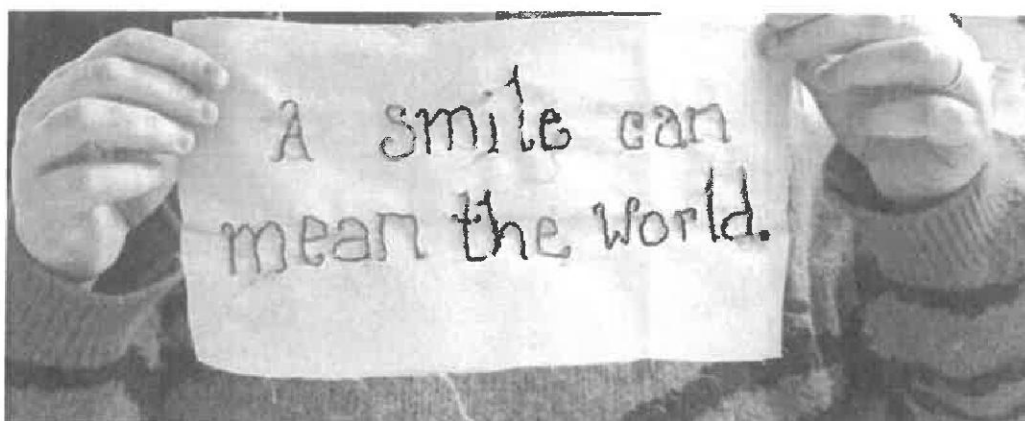 A smile can
mean the world.